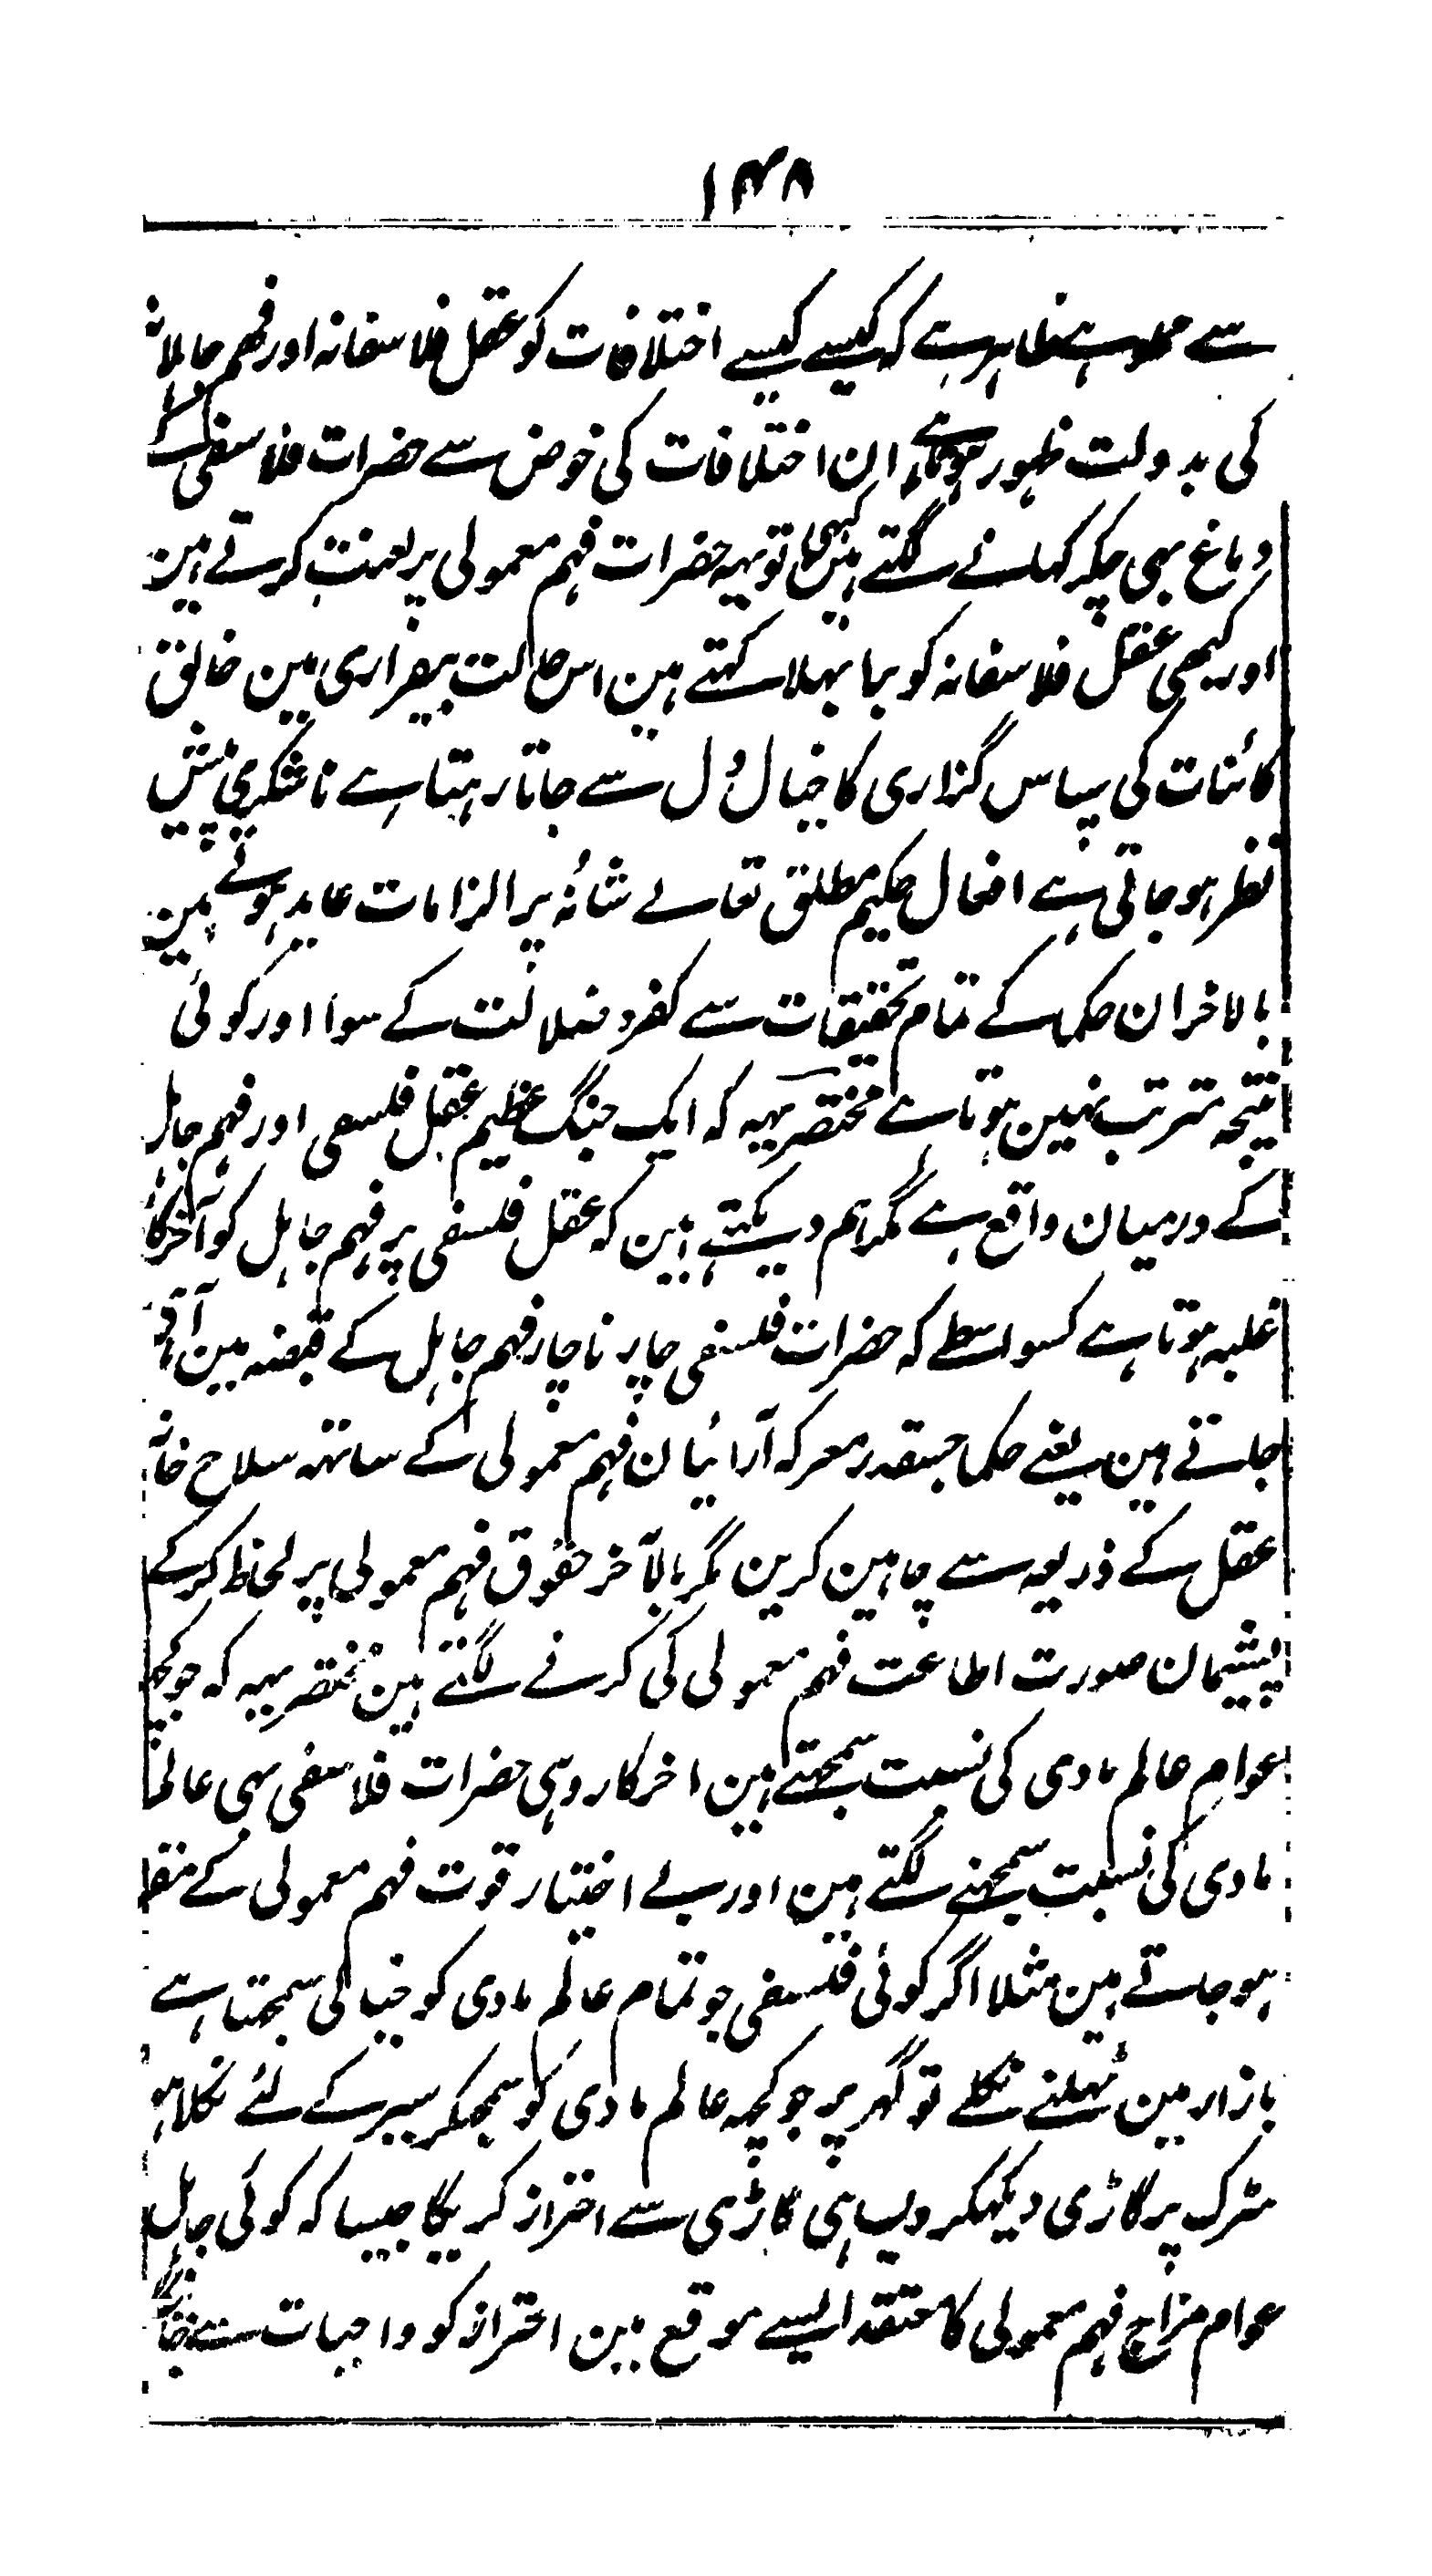 ۱۴۸
سے ظاہر ہے کہ کیسے کیسے اختلافات کو عقل فلاسفانہ اور فہم جاہلانہ
کی بدولت ظہور ان اختلافات کی خوض سے حضرات فلاسفی کے
دماغ بہی چکر کہانے لگتے ہین کبہی تو یہہ حضرات فہم معمولی پر لعنت کرتے ہین
اور کبھی عقل فلاسفانہ کو برا بہلا کہتے ہین اس حالت بیقراری مین خالق
کائنات کی سپاس گزاری کا خیال دل سے جاتا رہتا ہے ناشکری پیش
نظر ہو جاتی ہے افعال حکیم مطلق تعالے شانُہ پر الزامات عاید ہوتے ہین
بالاخر ان حکما کے تمام تحقیقات سے کفر و ضلالت کے سوا اور کوئی
نتیجہ مترتب نہین ہوتا ہے مختصر یہہ کہ ایک جنگ عظیم عقل فلسفی اور فہم جاہل
کے درمیان واقع ہے مگر ہم دیکہتے ہین کہ عقل فلسفی پر فہم جاہل کو آخر کار
غلبہ ہوتا ہے کسواسطے کہ حضرات فلسفی چار ناچار فہم جاہل کے قبضہ مین آ ہی
جاتے ہین یعنے حکما جسقدر معرکہ آرائیان فہم معمولی کے ساتہہ سلاح خانہ
عقل کے ذریعہ سے چاہین کرین مگر بالآخر حقوق فہم معمولی پر لحاظ کرکے
پشیمان صورت اطاعت فہم معمولی کی کرنے لگتے ہین مختصر یہہ کہ جو کچھ
عوام عالم مادی کی نسبت سمجھتے ہین اخر کار وہی حضرات فلاسفی بہی عالم
مادی کی نسبت سمجھنے لگتے ہین اور بے اختیار قوت فہم معمولی کے
ہو جاتے ہین مثلا اگر کوئی فلسفی جو تمام عالم مادی کو خیالی سمجھتا ہے
بازار مین ٹہلنے نکلے تو گہر پر جو کچہ عالم مادی کو سمجھکر سیر کے لئے نکلا ہو
سڑک پر گاڑی دیکہکر ویسا ہی گاڑی سے احتراز کریگا جیسا کہ کوئی جاہل
عوام مزاج فہم معمولی کا معتقد ایسے موقع مین احتراز کو واجبات سے